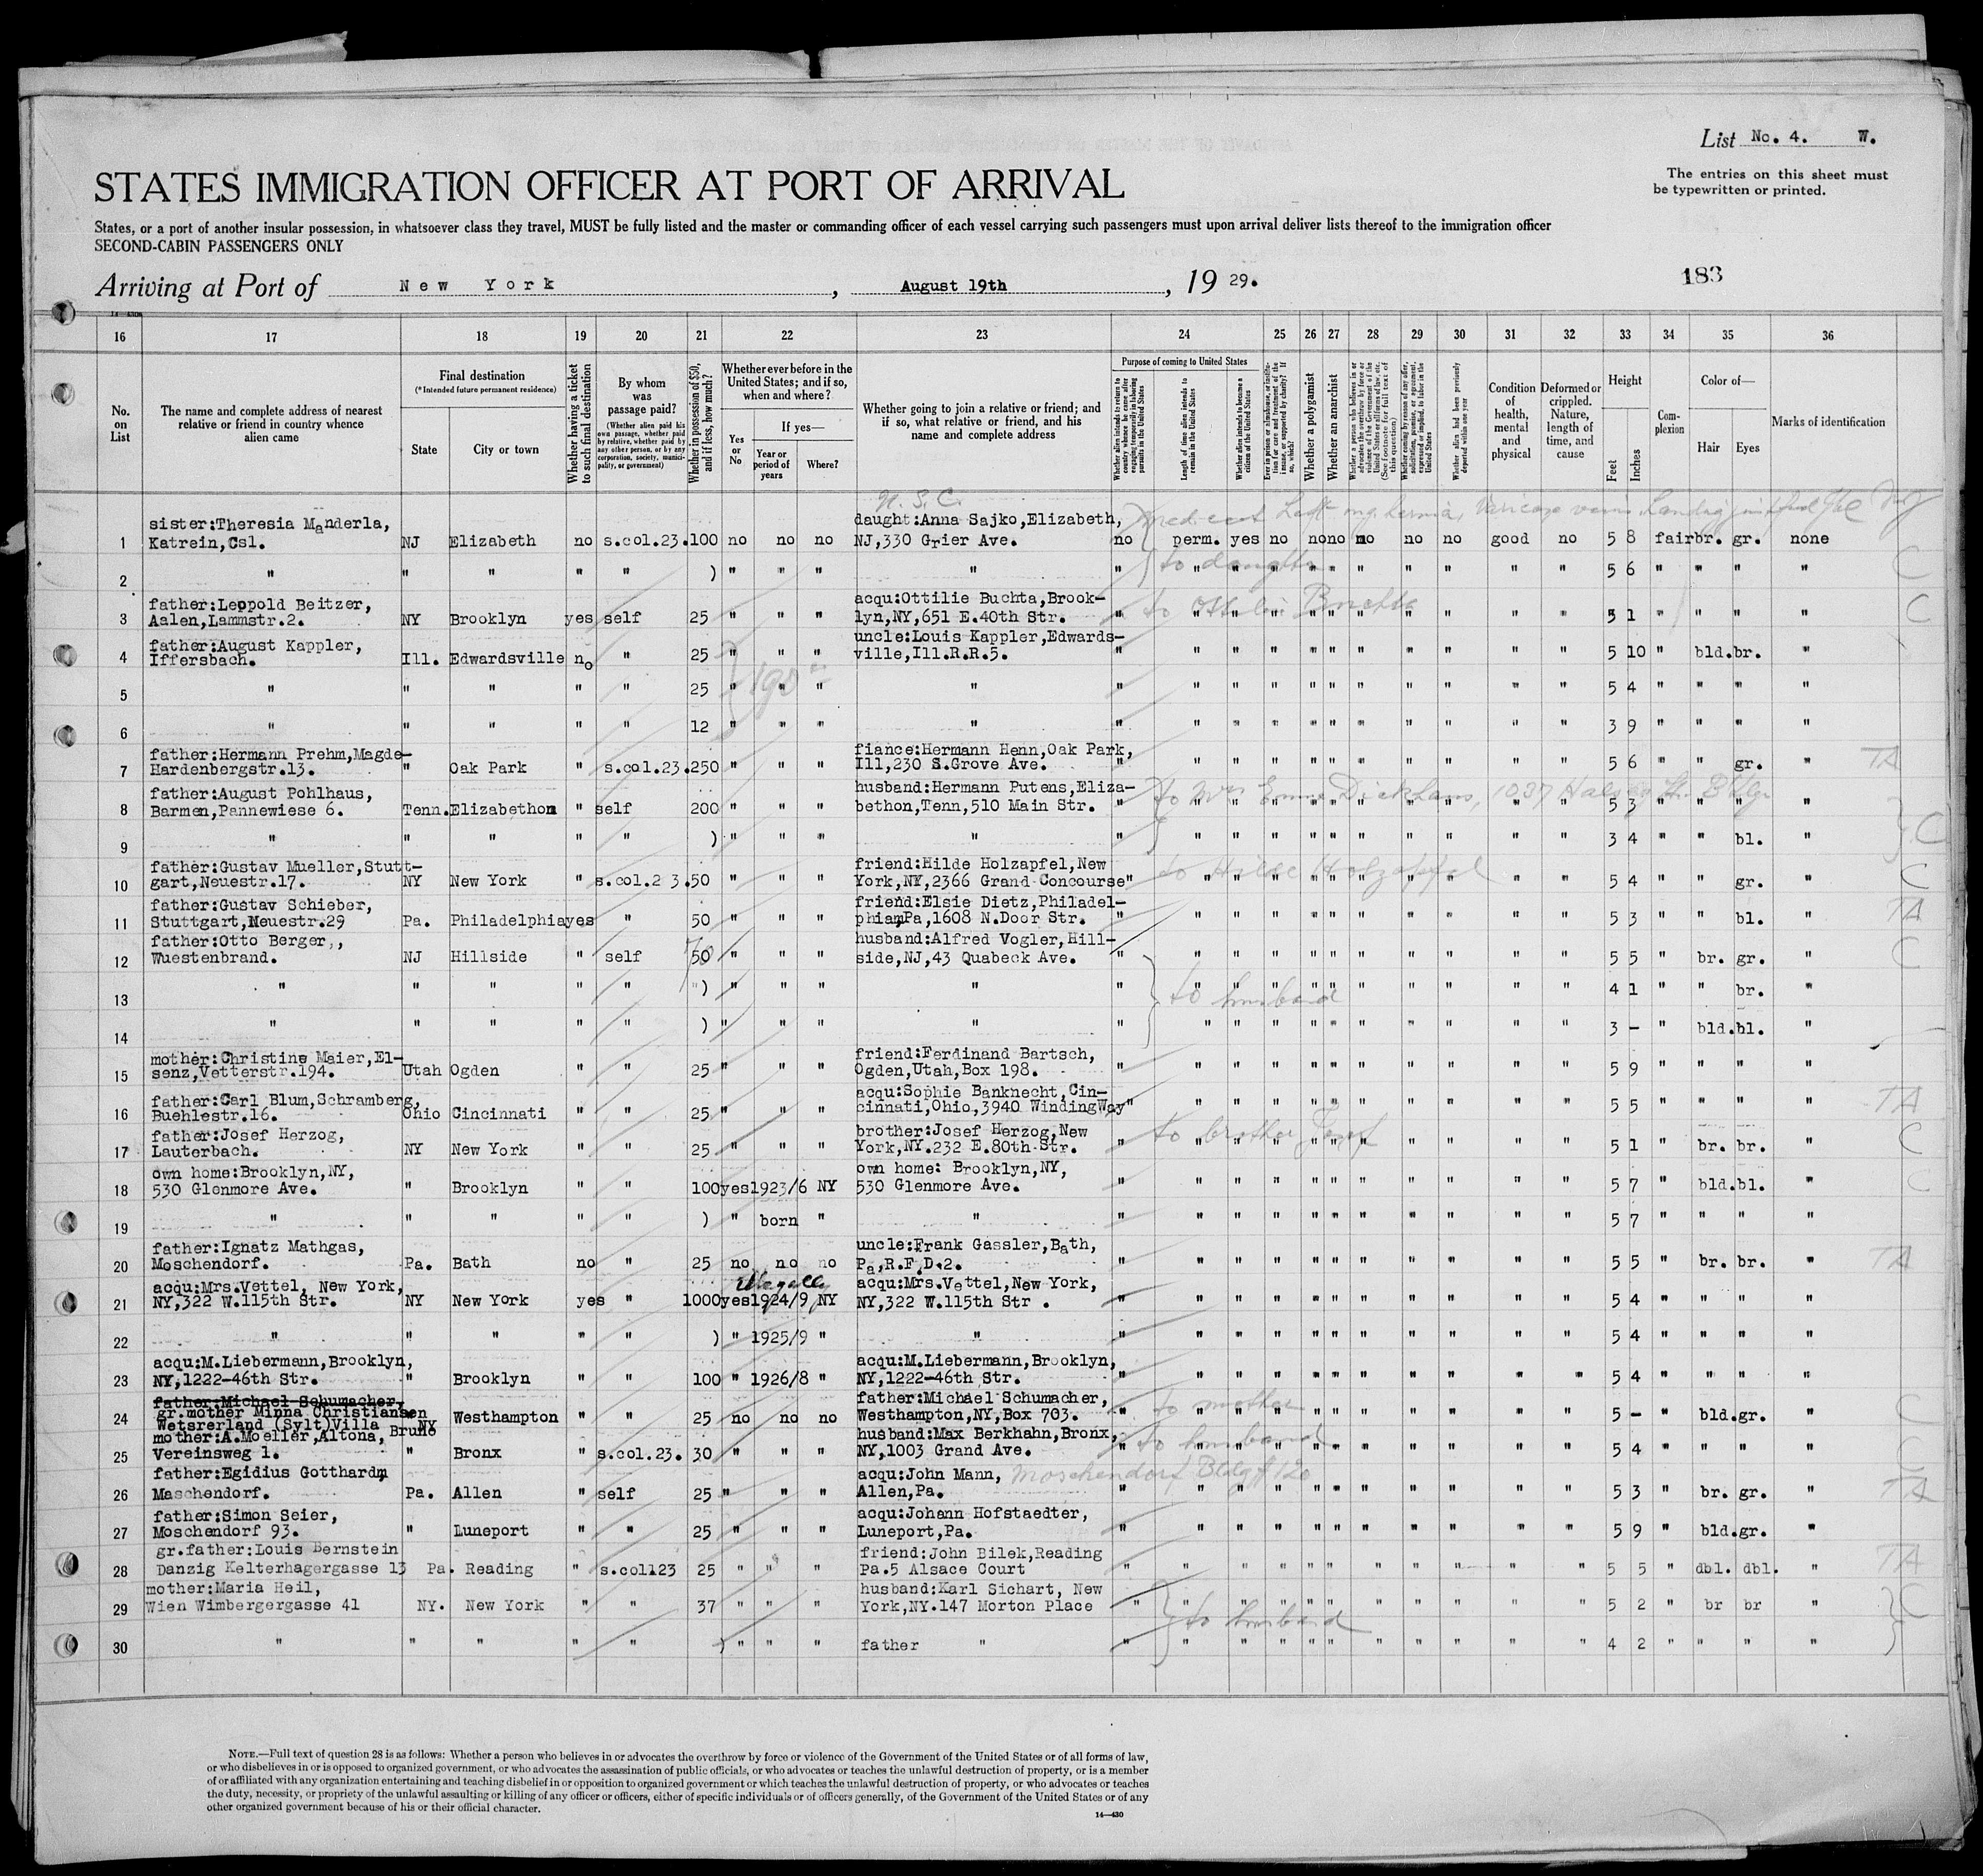 List No. 4. W.
The entries on this sheet must
be typewritten or printed.
STATES IMMIGRATION OFFICER AT PORT OF ARRIVAL
States, or a port of another insular possession, in whatsoever class they travel, MUST be fully listed and the master or commanding officer of each vessel carrying such passengers must upon arrival deliver lists thereof to the immigration officer
SECOND-CABIN PASSENGERS ONLY
Arriving at Port of New York , August 19th , 19 29.
183
16 17 18 19 20 21 22 23 24 25 26 27 28 29 30 31 32 33 34 35 36
No. on List
The name and complete address of nearest relative or friend in country whence alien came
Final destination
(*Intended future permanent residence)
State
City or town
Whether having a ticket to such final destination
By whom was passage paid?
(Whether alien paid his own passage, whether paid by relative, whether paid by any other person, or by any corporation, society, municipality, or government)
Whether in possession of $50, and if less, how much?
Whether ever before in the United States; and if so, when and where?
Yes or No
If yes—
Year or period of years
Where?
Whether going to join a relative or friend; and if so, what relative or friend, and his name and complete address
Purpose of coming to United States
Whether alien intends to return to country whence he came after engaging temporarily in laboring pursuits in the United States
Length of time alien intends to remain in the United States
Whether alien intends to become a citizen of the United States
Whether a polygamist
Whether an anarchist
Condition of health, mental and physical
Deformed or crippled. Nature, length of time, and cause
Height
Feet
Inches
Complexion
Color of—
Hair
Eyes
Marks of identification
N. S. C.
sister:Theresia Manderla, daught:Anna Sajko,Elizabeth,
1 Katrein,Csl. NJ Elizabeth no s.col.23. 100 no no no NJ,330 Grier Ave. no perm. yes no no no no no no good no 5 8 fair br. gr. none
2 " " " " " ) " " " " " to daughter " " " " " " " " " " 5 6 " " " " C
father:Leopold Beitzer, acqu:Ottilie Buchta,Brook-
3 Aalen,Lammstr.2. NY Brooklyn yes self 25 " " " lyn,NY,651 E.40th Str. " " " " " " " " " " " 5 1 " " " " C
father:August Kappler, uncle:Louis Kappler,Edwards-
4 Iffersbach. Ill. Edwardsville no " 25 " " " ville,Ill.R.R.5. " " " " " " " " " " " 5 10 " bld. br. "
5 " " " " " 25 " " " " " " " " " " " " " " " 5 4 " " " "
6 " " " " " 12 " " " " " " " " " " " " " " " 3 9 " " " "
father:Hermann Prehm,Magde- fiance:Hermann Henn,Oak Park,
7 Hardenbergstr.13. " Oak Park " s.col.23. 250 " " " Ill,230 S.Grove Ave. " " " " " " " " " " " 5 6 " " gr. " TA
father:August Pohlhaus, husband:Hermann Putens,Eliza-
8 Barmen,Pannewiese 6. Tenn. Elizabethon " self 200 " " " bethon,Tenn,510 Main Str. " " " " " " " " " " " 5 3 " " " "
9 " " " " " ) " " " " " " " " " " " " " " " 3 4 " " bl. " C
father:Gustav Mueller,Stutt- friend:Hilde Holzapfel,New
10 gart,Neuestr.17. NY New York " s.col.2 3. 50 " " " York,NY,2366 Grand Concourse " to Hilde Holzapfel " " " " " " " " " " 5 4 " " gr. " C
father:Gustav Schieber, friend:Elsie Dietz,Philadel-
11 Stuttgart,Neuestr.29 Pa. Philadelphia yes " 50 " " " phia,Pa,1608 N.Door Str. " " " " " " " " " " " 5 3 " " bl. " TA
father:Otto Berger,, husband:Alfred Vogler,Hill-
12 Wuestenbrand. NJ Hillside " self 50 " " " side,NJ,43 Quabeck Ave. " " " " " " " " " " " 5 5 " br. gr. " C
13 " " " " " ) " " " " " to husband " " " " " " " " " " 4 1 " " br. "
14 " " " " " ) " " " " " " " " " " " " " " " 3 - " bld. bl. "
mother:Christine Maier,El- friend:Ferdinand Bartsch,
15 senz,Vetterstr.194. Utah Ogden " " 25 " " " Ogden,Utah,Box 198. " " " " " " " " " " " 5 9 " " " "
father:Carl Blum,Schramberg, acqu:Sophie Banknecht,Cin-
16 Buehlestr.16. Ohio Cincinnati " " 25 " " " cinnati,Ohio,3940 WindingWay " " " " " " " " " " " 5 5 " " " " TA
father:Josef Herzog, brother:Josef Herzog,New
17 Lauterbach. NY New York " " 25 " " " York,NY.232 E.80th Str. " to brother Josef " " " " " " " " " " 5 1 " br. br. " C
own home:Brooklyn,NY, own home: Brooklyn,NY,
18 530 Glenmore Ave. " Brooklyn " " 100 yes 1923/6 NY 530 Glenmore Ave. " " " " " " " " " " " 5 7 " bld. bl. " C
19 " " " " " ) " born " " " " " " " " " " " " " 5 7 " " " "
father:Ignatz Mathgas, uncle:Frank Gassler,Bath,
20 Moschendorf. Pa. Bath no " 25 no no no Pa,R.F.D.2. " " " " " " " " " " " 5 5 " br. br. " TA
acqu:Mrs.Vettel, New York, illegally acqu:Mrs.Vettel,New York,
21 NY,322 W.115th Str. NY New York yes " 1000 yes 1924/9 NY NY,322 W.115th Str . " " " " " " " " " " " 5 4 " " " "
22 " " " " " ) " 1925/9 " " " " " " " " " " " " " 5 4 " " " "
acqu:M.Liebermann,Brooklyn, acqu:M.Liebermann,Brooklyn,
23 NY,1222-46th Str. " Brooklyn " " 100 " 1926/8 " NY,1222-46th Str. " " " " " " " " " " " 5 4 " " " "
father:Michael Schumacher, father:Michael Schumacher,
gr.mother Minna Christiansen
24 Wetsrerland (Sylt)Villa Bruno NY Westhampton " " 25 no no no Westhampton,NY,Box 703. " to mother " " " " " " " " " " 5 - " bld. gr. " C
mother:A.Moeller,Altona, husband:Max Berkhahn,Bronx,
25 Vereinsweg 1. " Bronx " s.col.23. 30 " " " NY,1003 Grand Ave. " to husband " " " " " " " " " " 5 4 " " " " C
father:Egidius Gotthard, acqu:John Mann, Moschendorf Bldg # 120
26 Maschendorf. Pa. Allen " self 25 " " " Allen,Pa. " " " " " " " " " " " 5 3 " br. gr. " TA
father:Simon Seier, acqu:Johann Hofstaedter,
27 Moschendorf 93. " Luneport " " 25 " " " Luneport,Pa. " " " " " " " " " " " 5 9 " bld. gr. "
gr.father:Louis Bernstein friend:John Bilek,Reading
28 Danzig Kelterhagergasse 13 Pa. Reading " s.col123 25 " " " Pa.5 Alsace Court " " " " " " " " " " " 5 5 " dbl. dbl. " TA
mother:Maria Heil, husband:Karl Sichart, New
29 Wien Wimbergergasse 41 NY. New York " " 37 " " " York,NY.147 Morton Place " to husband " " " " " " " " " " 5 2 " br br " C
30 " " " " " ) " " " father " " " " " " " " " " " " 4 2 " " " "
NOTE.—Full text of question 28 is as follows: Whether a person who believes in or advocates the overthrow by force or violence of the Government of the United States or of all forms of law,
or who disbelieves in or is opposed to organized government, or who advocates the assassination of public officials, or who advocates or teaches the unlawful destruction of property, or is a member
of or affiliated with any organization entertaining and teaching disbelief in or opposition to organized government or which teaches the unlawful destruction of property, or who advocates or teaches
the duty, necessity, or propriety of the unlawful assaulting or killing of any officer or officers, either of specific individuals or of officers generally, of the Government of the United States or of any
other organized government because of his or their official character.
14—430